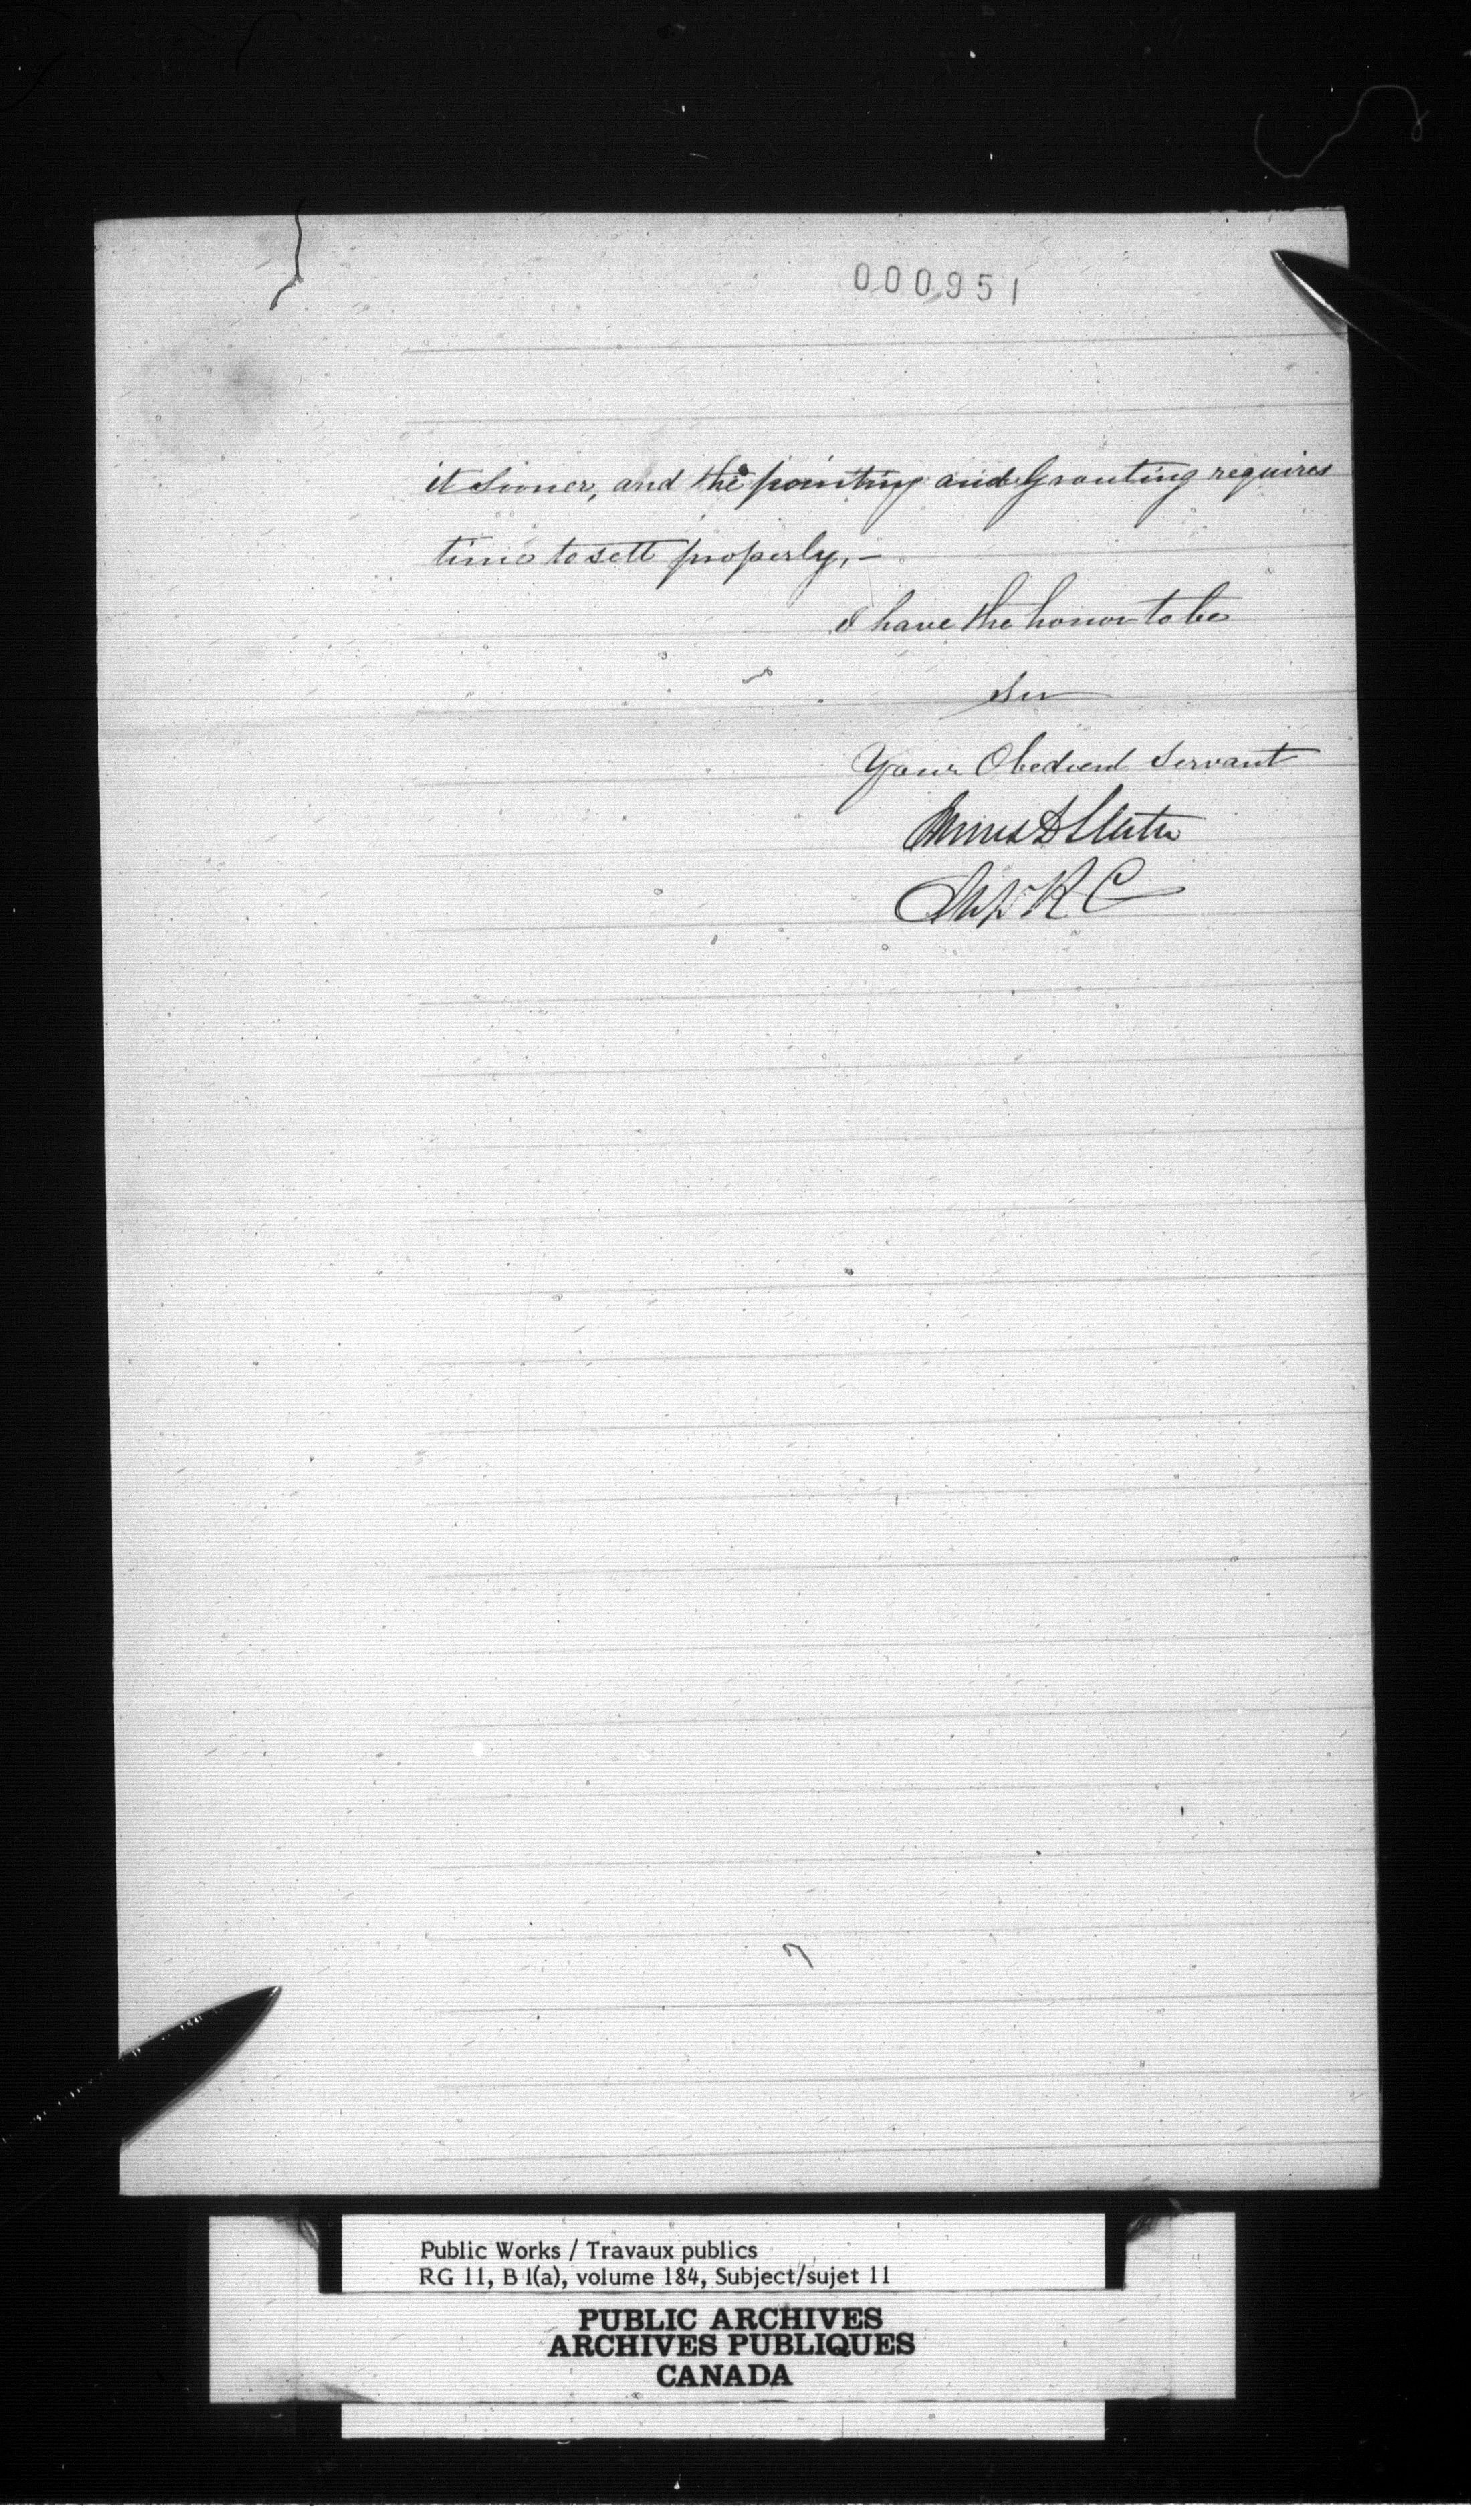 000951
it sooner, and the pointing and Grouting requires
time to sett properly, —
I have the honor to be
Sir
Your Obedient Servant
James D Slater
Supt R C
Public Works / Travaux publics
RG 11, B 1(a), volume 184, Subject/sujet 11
PUBLIC ARCHIVES
ARCHIVES PUBLIQUES
CANADA